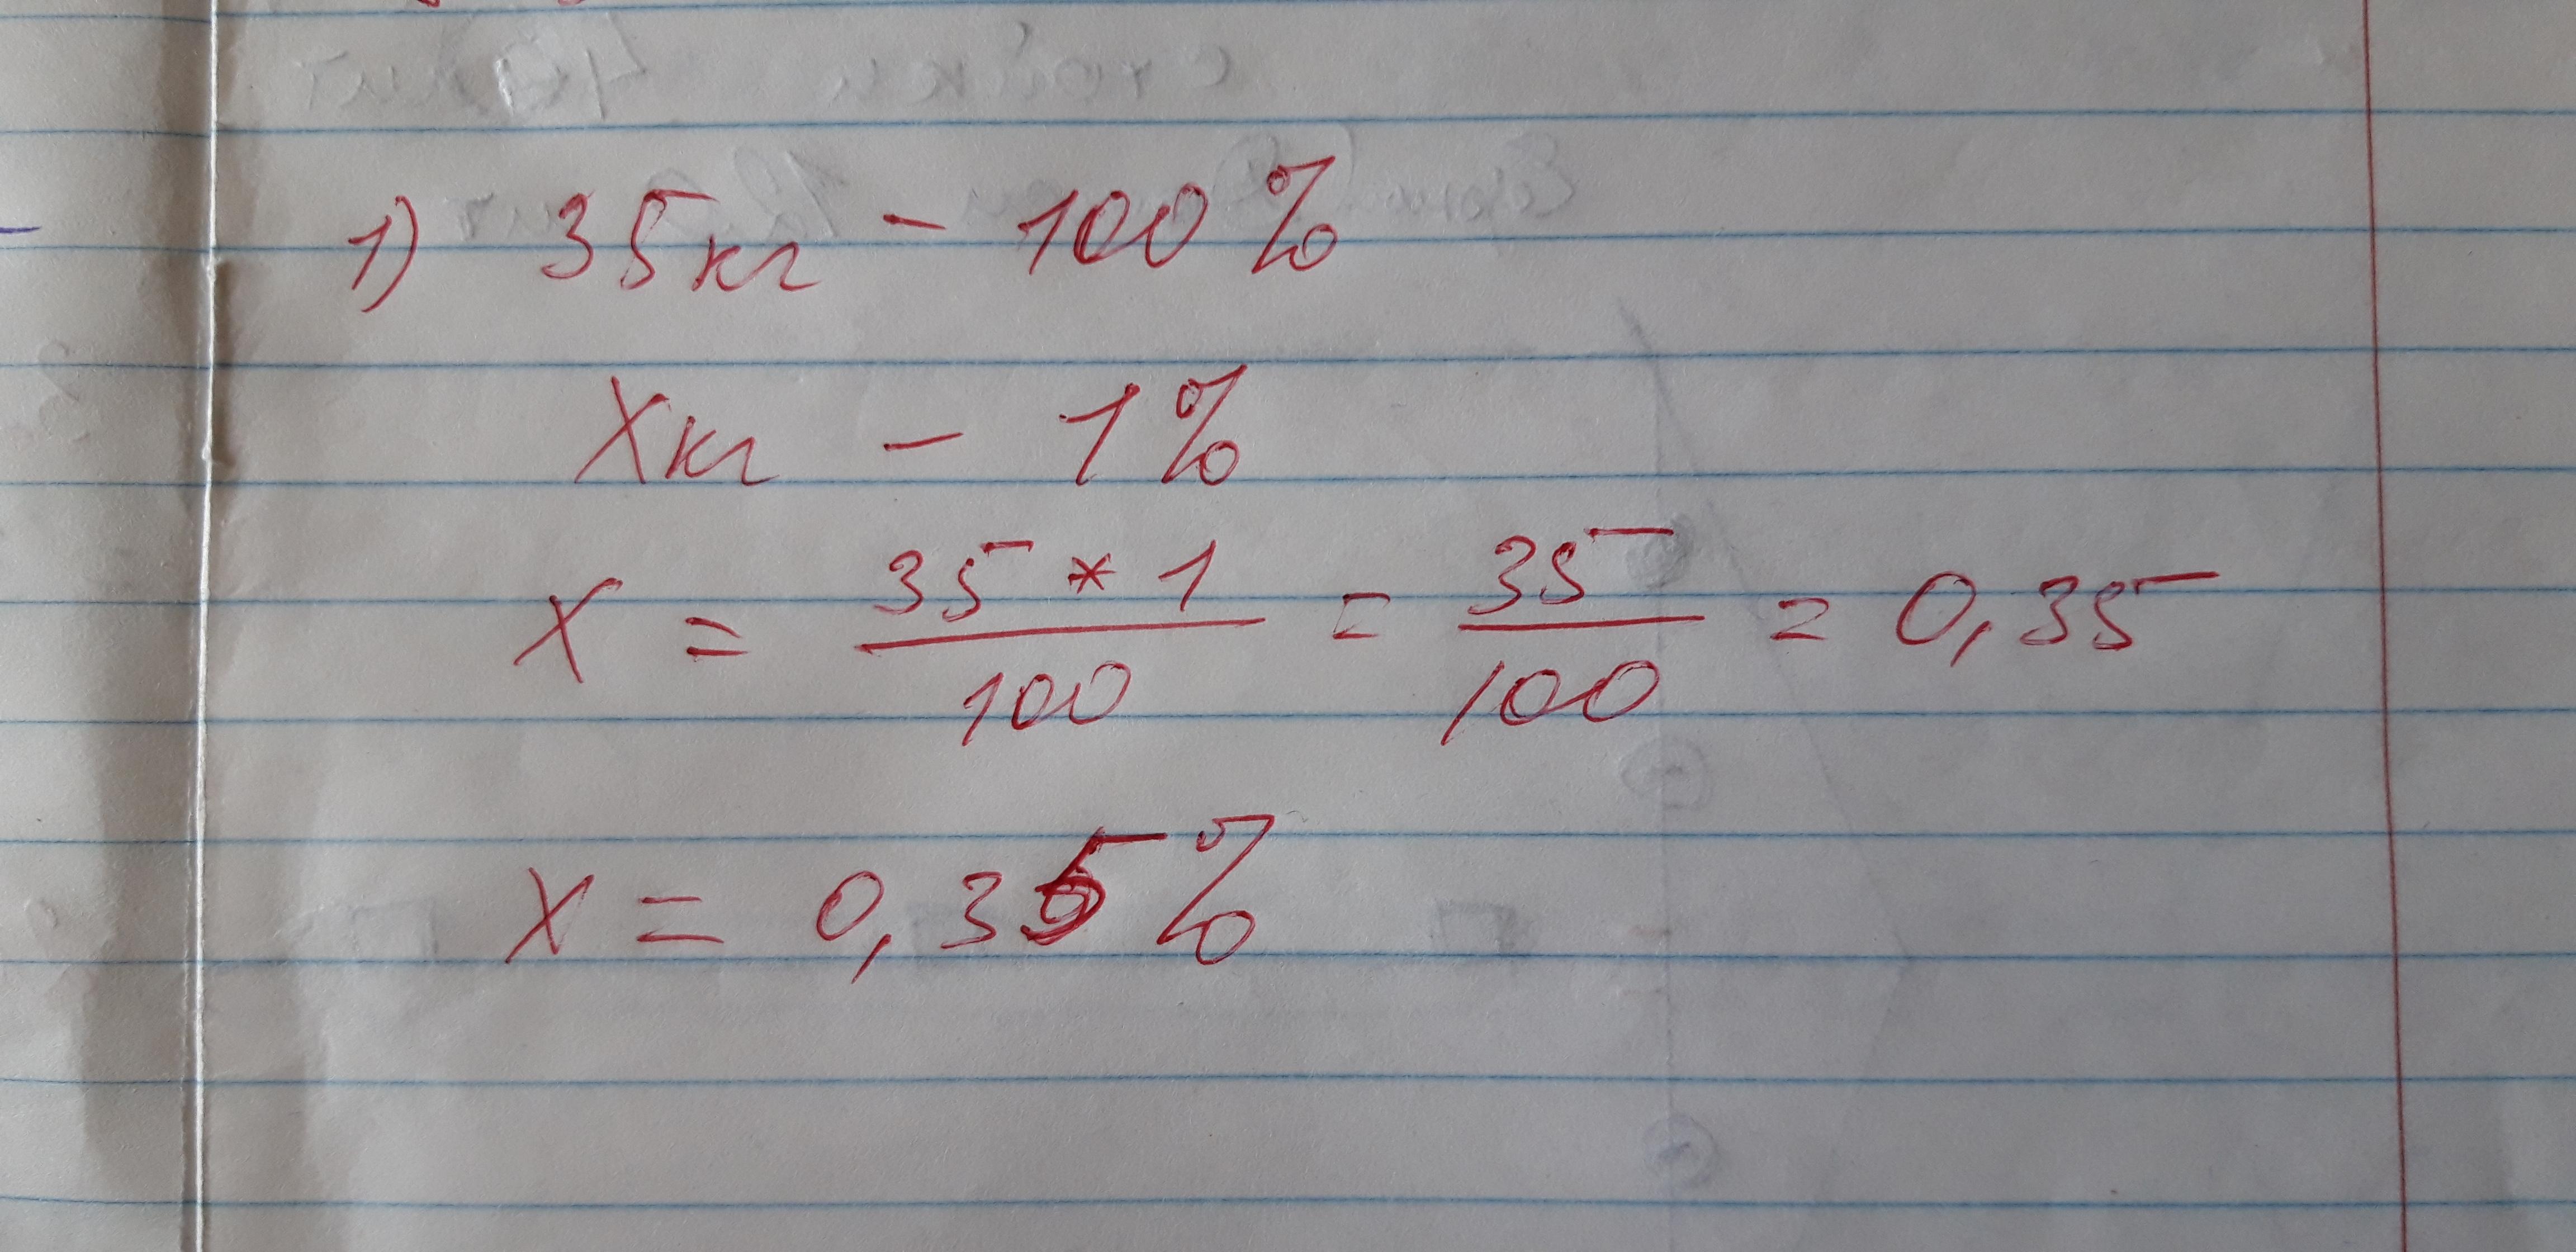 1) 35кг - 100%
Xкг - 1%
X = 35 * 1 / 100 = 35 / 100 = 0,35
X = 0,35%